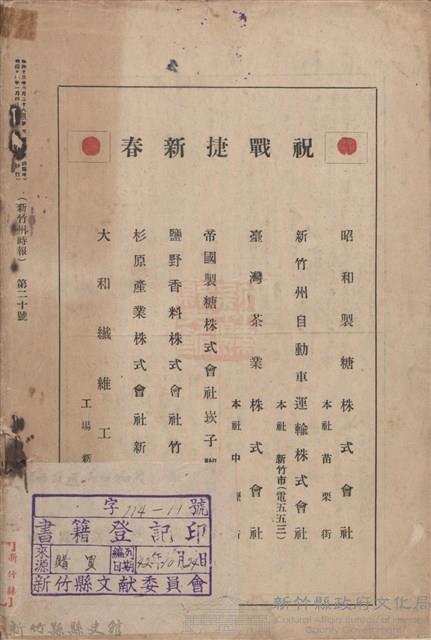 祝戰捷新春
昭和製糖株式會社
本社 苗栗街
新竹州自動車運輸株式會社
本社 新竹市(電五五三)
臺灣茶業株式會社
本社 中 街
帝國製糖株式會社崁子
鹽野香料株式會社竹
杉原產業株式會社新
大和纖維工
工場
(新竹州時報) 第二十號
字114-11號
書籍登記印
來源 購買
編列日期 42年10月24日
新竹縣文献委員會
新竹縣
新竹縣縣史館
新竹縣政府文化局
Cultural Affairs Bureau of Hsinchu